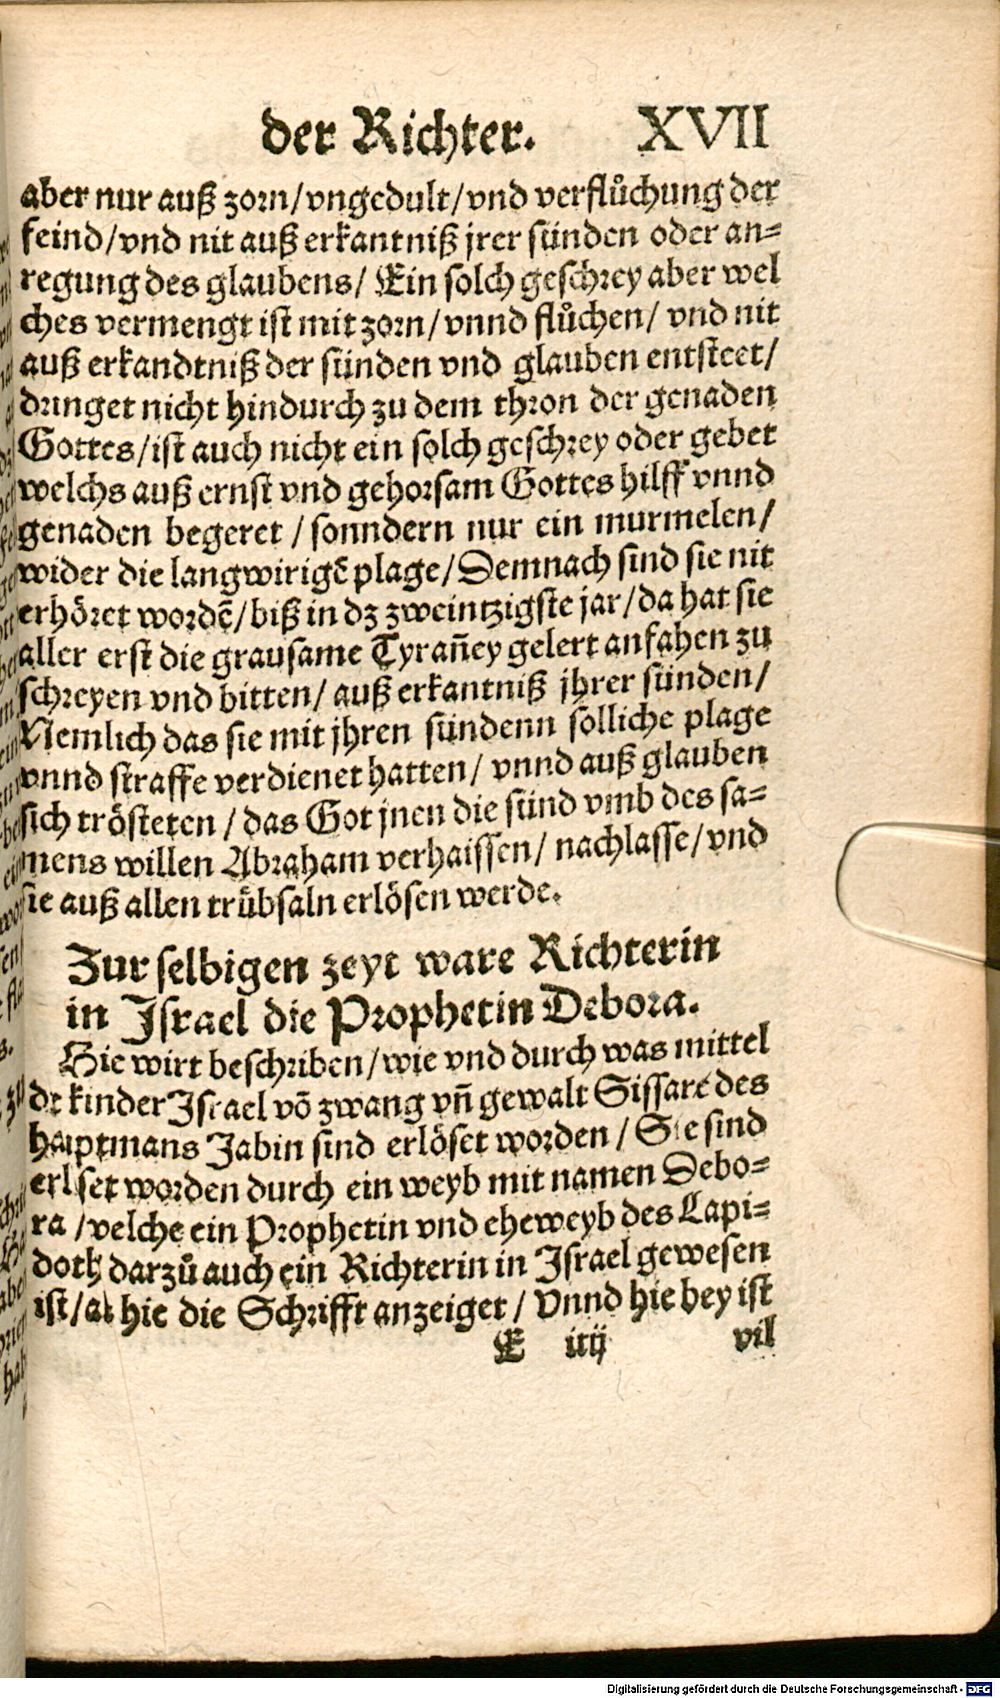 der Richter. XVII
aber nur auß zorn/vngedult/vnd verflůchung der
feind/vnd nit auß erkantniß jrer sünden oder an=
regung des glaubens/ Ein solch geschrey aber wel
ches vermengt ist mit zorn/vnnd flůchen/ vnd nit
auß erkandtniß der sünden vnd glauben entsteet/
dringet nicht hindurch zu dem thron der genaden
Gottes/ist auch nicht ein solch geschrey oder gebet
welchs auß ernst vnd gehorsam Gottes hilff vnnd
genaden begeret / sonndern nur ein murmelen/
wider die langwirigẽ plage/Demnach sind sie nit
erhöret wordẽ/biß in dz zweintzigste jar/da hat sie
aller erst die grausame Tyrañey gelert anfahen zu
schreyen vnd bitten/ auß erkantniß jhrer sünden/
Nemlich das sie mit jhren sündenn solliche plage
vnnd straffe verdienet hatten/ vnnd auß glauben
sich trösteten / das Got jnen die sünd vmb des sa=
mens willen Abraham verhaissen/ nachlasse/vnd
sie auß allen trübsaln erlösen werde.
Zur selbigen zeyt ware Richterin
in Israel die Prophetin Debora.
Hie wirt beschriben/wie vnd durch was mittel
de kinder Israel võ zwang vñ gewalt Sissare des
hauptmans Jabin sind erlöset worden / Sie sind
erlset worden durch ein weyb mit namen Debo=
ra /welche ein Prophetin vnd eheweyb des Lapi=
doth darzů auch ein Richterin in Israel gewesen
ist/als hie die Schrifft anzeiget / Vnnd hie bey ist
E iiij vil
Digitalisierung gefördert durch die Deutsche Forschungsgemeinschaft - DFG